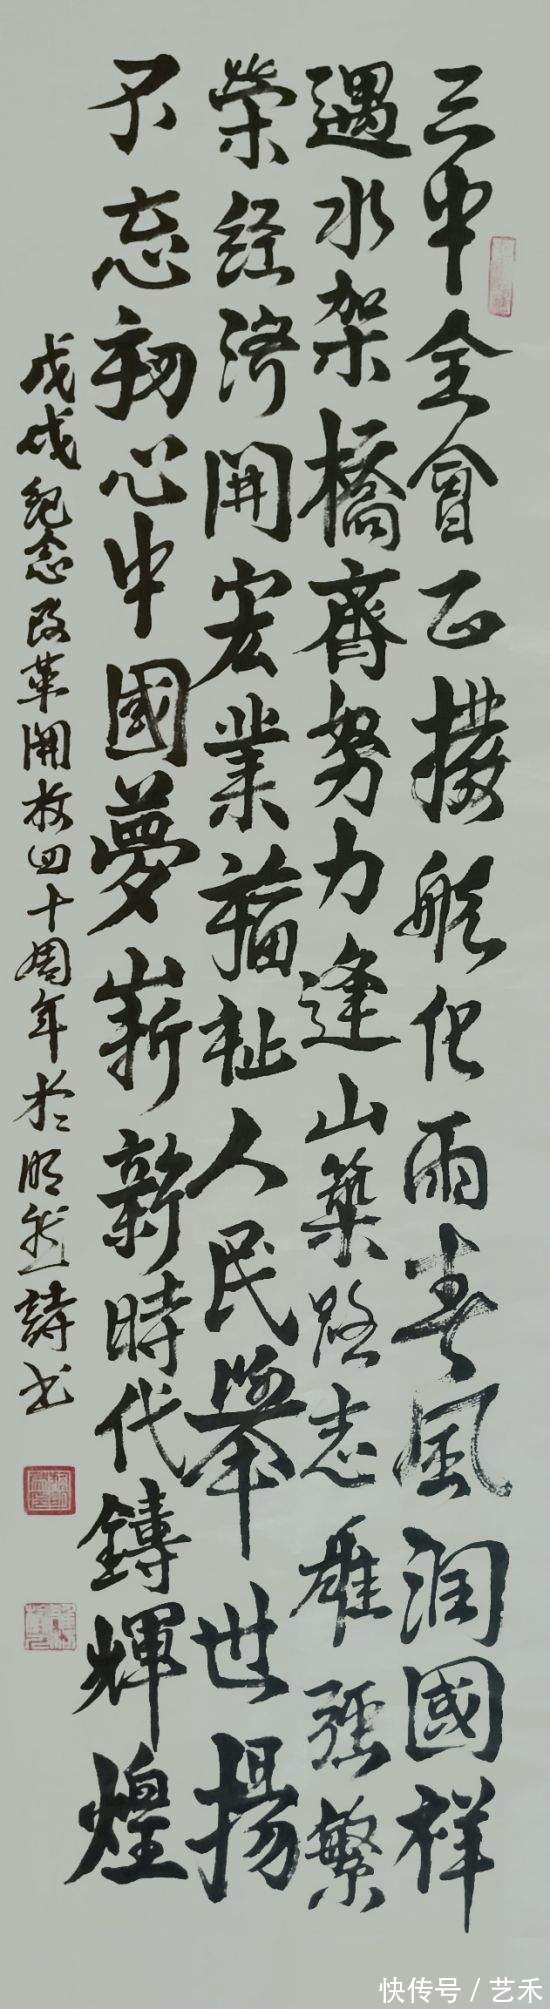 三中全會正撥航化雨春風润國祥
遇水架橋齊努力逢山築路志雄强繁
榮經济開宏業福祉人民舉世揚
不忘初心中國夢嶄新時代鑄輝煌
戊戌纪念改革開放四十周年於明然詩书
快传号/艺禾